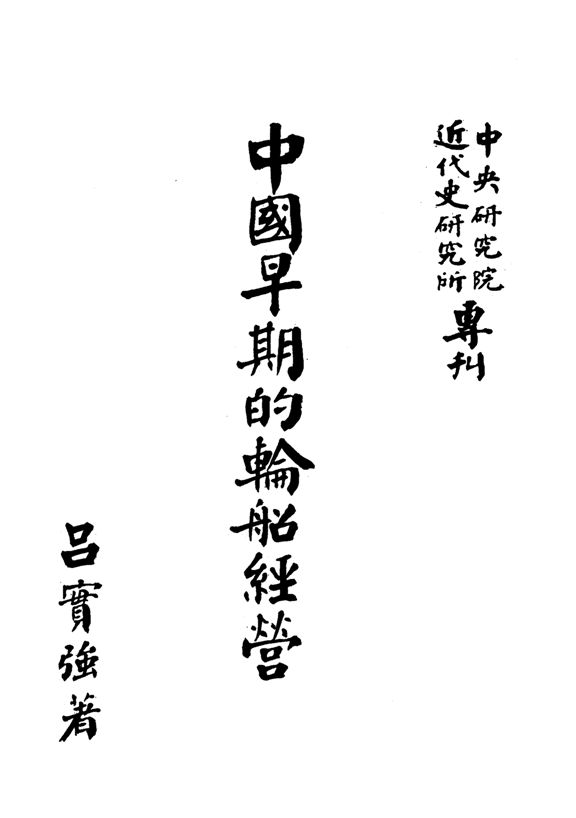 中央研究院
近代史研究所
專刋
中國早期的輪船經營
呂實強著